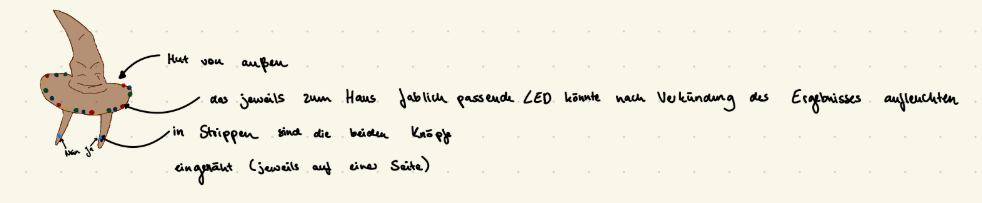 Hut von außen
das jeweils zum Haus fablich passende LED könnte nach Verkündung des Ergebnisses aufleuchten
in Strippen sind die beiden Knöpfe
eingenäht (jeweils auf einer Seite)
nein ja